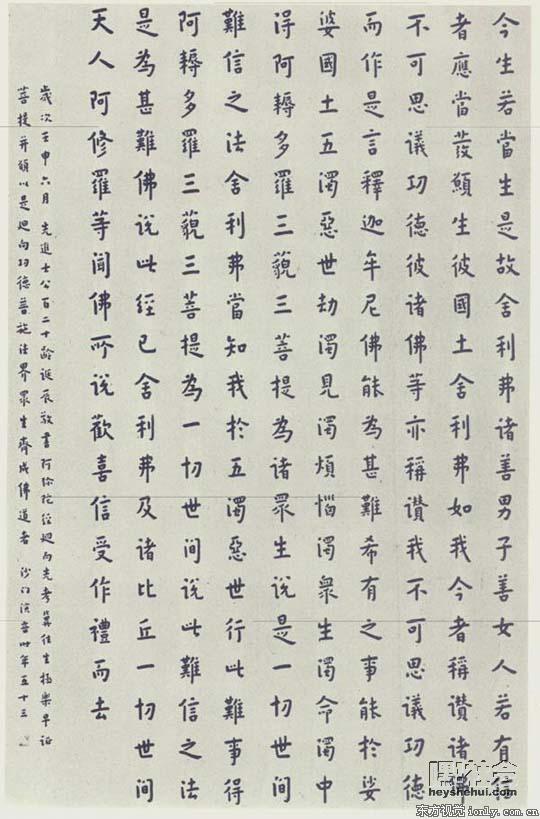 今生若當生是故舍利弗諸善男子善女人若有信
者應當發願生彼國土舍利弗如我今者稱讚諸佛
不可思議功德彼諸佛等亦稱讚我不可思議功德
而作是言釋迦牟尼佛能為甚難希有之事能於娑
婆國土五濁惡世劫濁見濁煩惱濁眾生濁命濁中
得阿耨多羅三藐三菩提為諸眾生說是一切世間
難信之法舍利弗當知我於五濁惡世行此難事得
阿耨多羅三藐三菩提為一切世間說此難信之法
是為甚難佛說此經已舍利弗及諸比丘一切世間
天人阿修羅等聞佛所說歡喜信受作禮而去
歲次壬申六月 先進士公百二十齡誕辰敬書阿彌陀經迴向先考冀往生極樂早證
菩提并願以是迴向功德普施法界眾生齊成佛道者 沙門演音 年五十三
heyshehui.com
东方视觉 ionly.com.cn